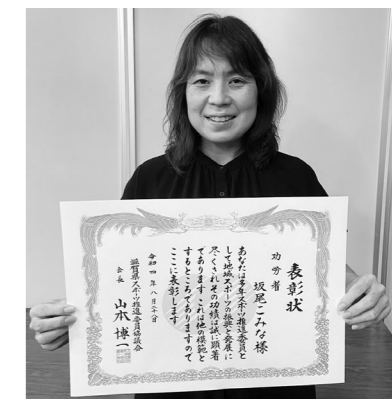 表彰状
功労者
坂尾こみな様
あなたは多年スポーツ推進委員と
して地域スポーツの振興と発展に
尽くされその功績は誠に顕著
であります これは他の模範と
するところでありますので
ここに表彰します
令和四年八月二十八日
滋賀県スポーツ推進委員協議会
会長 山本博一